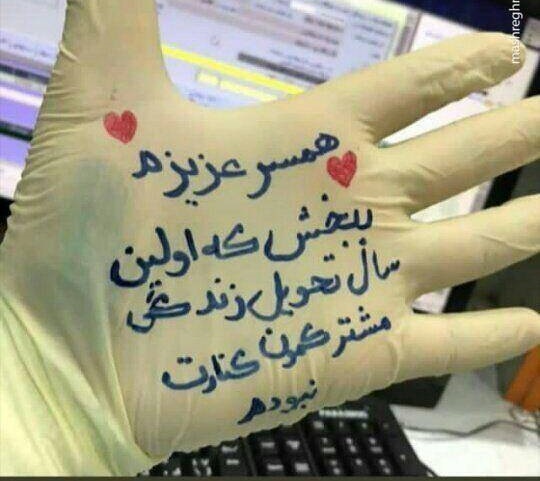 همسر عزیزم
ببخش که اولین
سال تحویل زندگی
مشترکمون کنارت
نبودم
mashregh